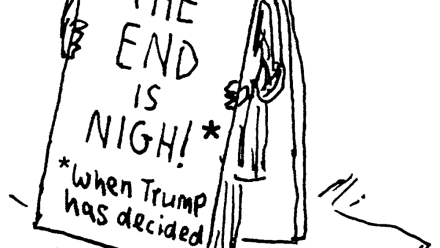 THE
END
IS
NIGH!*
*When Trump
has decided